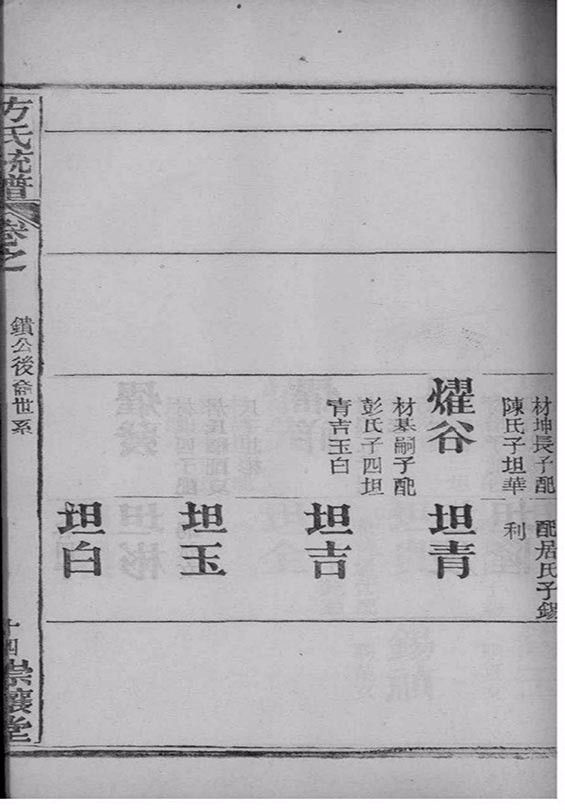 材坤長子配
陳氏子坦華
配居氏子錫
利
燿谷
材基嗣子配
彭氏子四坦
青吉玉白
坦青
坦吉
坦玉
坦白
方氏統譜
卷之
鐀公後裔世系
十四
崇讓堂